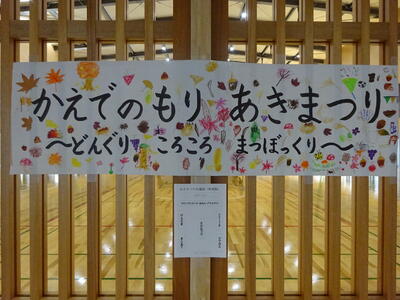 かえでのもり あきまつり
～どんぐり ころころ まつぼっくり～